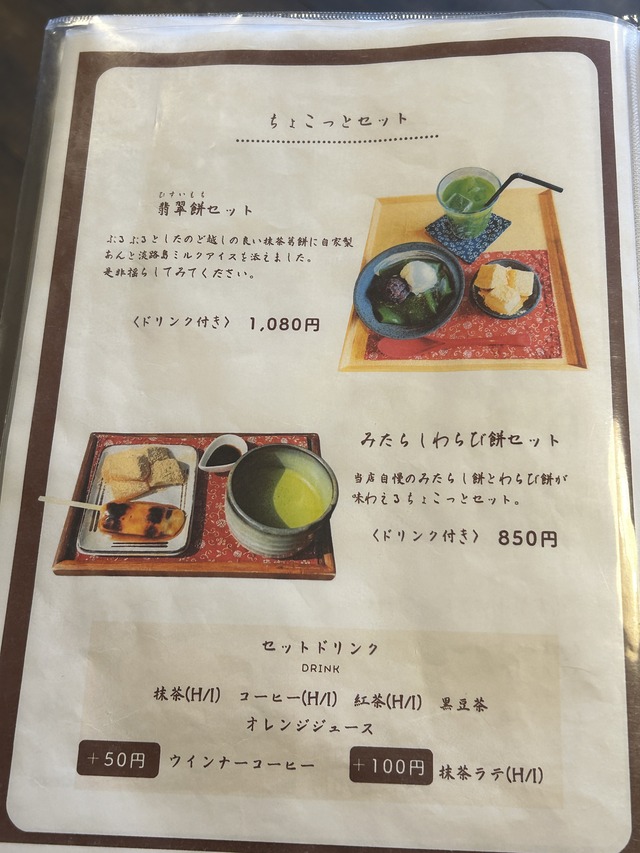 ちょこっとセット
ひすいもち
翡翠餅セット
ぷるぷるとしたのど越しの良い抹茶葛餅に自家製
あんと淡路島ミルクアイスを添えました。
是非揺らしてみてください。
〈ドリンク付き〉 1,080円
みたらしわらび餅セット
当店自慢のみたらし餅とわらび餅が
味わえるちょこっとセット。
〈ドリンク付き〉 850円
セットドリンク
DRINK
抹茶(H/I) コーヒー(H/I) 紅茶(H/I) 黒豆茶
オレンジジュース
+50円 ウインナーコーヒー +100円 抹茶ラテ(H/I)